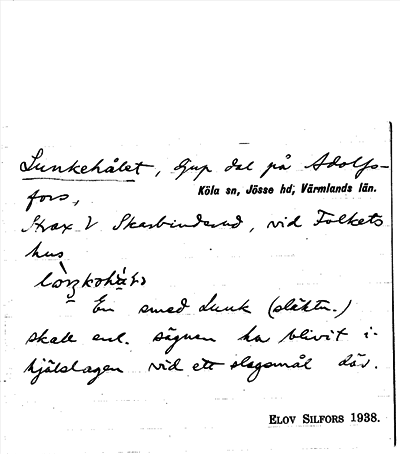 Lunkehålet, djup dal på Adolfs-
fors,
Köla sn, Jösse hd, Värmlands län.
Strax V Skarbinderud, vid Folkets
hus
En smed Lunk (släktn.)
skall enl. sägnen ha blivit i-
hjälslagen vid ett slagsmål där.
ELOV SILFORS 1938.